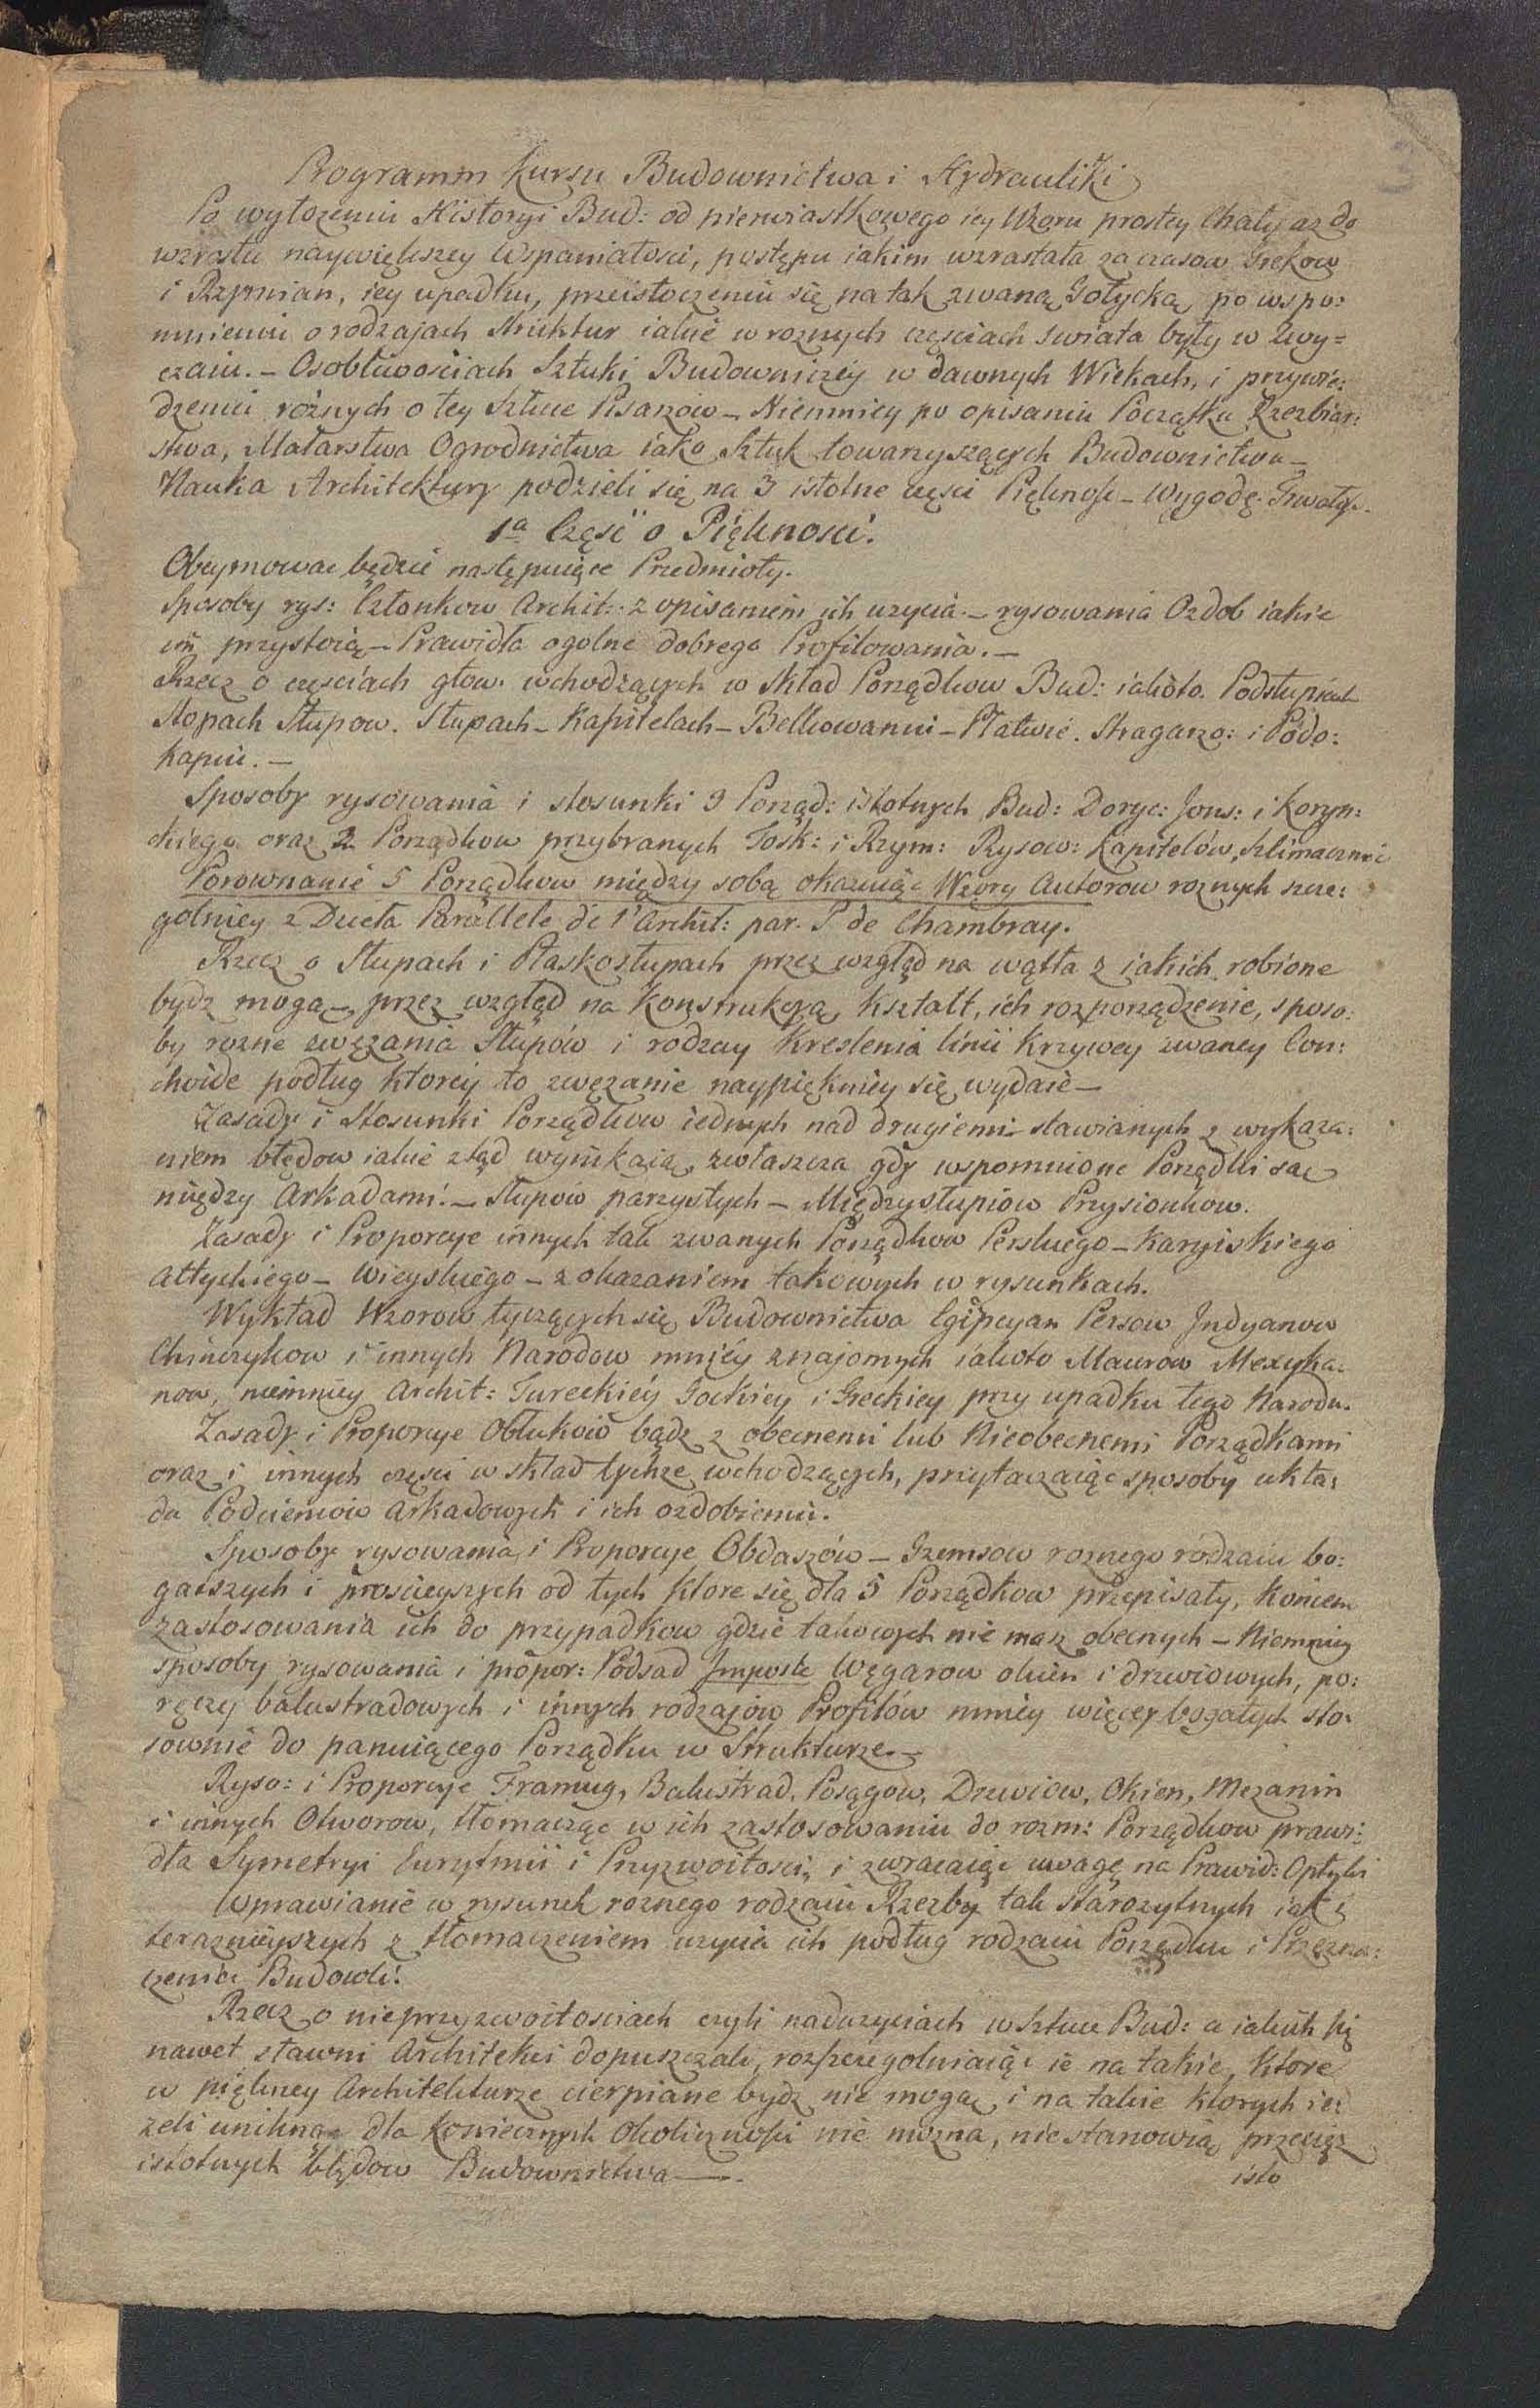 Programm Kursu Budownictwa i Hydrauliki
Po wyłozeniu Historyi Bud: od pierwiastkowego iey Wzoru prostey Chaty az do
wzrostu naywiększey Wspaniałosci, postępu iakim wzrastała za czasow Grekow
i Rzymian, iey upadku, przeistoczeniu się na tak zwaną Gotycką, po wspo=
mnieniu o rodzajach Struktur iakie w roznych częsciach swiata były w zwy=
czaiu. – Osobliwościach Sztuki Budowniczéy w dawnych Wiekach, i przywie=
dzeniu różnych o tey Sztuce Pisarzów – Niemniey po opisaniu Początku Rzezbiar=
stwa, Malarstwa Ogrodnictwa iako Sztuk towarzyszących Budownictwu –
Nauka Architektury podzieli się na 3 istotne częsci Pięknosc – Wygodę. Trwałosc.
1a Częsć o Pięknosci.
Obeymowac będzie następuiące Przedmioty.
Sposoby rys: Członkow Archit: z opisaniem ich uzycia. – rysowania Ozdob iakie
im przystoią – Prawidła ogolne dobrego Profilowania. –
Rzecz o częsciach głow. wchodzących w Skład Porządkow Bud: iakoto. Podsłupiach
Stopach Słupow. Słupach – Kapitelach – Belkowaniu – Płatwie. Stragarzo: i Podo=
kapiu. –
Sposoby rysowania i stosunki 3 Porząd: istotnych Bud: Doryc: Jons: i Koryn:
ckiego oraz 2 Porządkow przybranych Tosk: i Rzym: Rysow: Kapitelów, szlimacznic
Porownanie 5 Porządkow między sobą okazuiąc Wzory Autorow roznych szcze:
golniey z Dzieła Parallele de l'Archit: par. P de Chambray.
Rzecz o Słupach i Płaskosłupach przez wzgląd na wątła z iakich robione
bydz mogą – przez wzgląd na Konstrukcyą, kształt, ich rozporządzenie, sposo:
by rozne zwęzania Słupów i rodzay Kreslenia linii Krzywey zwaney Con:
choide podług którey to zwęzanie naypiękniey się wydaie –
Zasady i Stosunki Porządkow iednych nad drugiemi stawianych z wykaza:
niem błędow iakie ztąd wynikaią, zwłaszcza gdy wspomnione Porządki są
między Arkadami. – Słupów parzystych – Międzysłupiow Przysionkow.
Zasady i Proporcye innych tak zwanych Porządkow Perskiego – Karyiskiego
Attyckiego – Wieyskiego – z okazaniem takowych w rysunkach.
Wykład Wzorow tyczących się Budownictwa Egipcyan Persow Jndyanow
Chinczykow i innych Narodow mniéy znajomych iakoto Maurow Mexyka:
now, niemniey Archit: Tureckiéy Gockiey i Greckiey przy upadku tego Narodu.
Zasady i Proporcye Obłuków bądz z obecnemi lub Nieobecnemi Porządkami
oraz i innych częsci w skład tychze wchodzących, przytaczaiąc sposoby ukła:
du Podcieniow Arkadowych i ich ozdobieniu.
Sposoby rysowania i Proporcye Obdaszów – Gzemsow roznego rodzaiu bo:
gatszych i prościeyszych od tych ktore się dla 5 Porządkow przepisały, koncem
zastosowania ich do przypadkow gdzie takowych nie masz obecnych – Niemniey
sposoby rysowania i propor: Podsad Imposte Węgarow okien i drzwiowych, po:
ręczy balustradowych i innych rodzajów Profilów mniey więcey bogatych sto:
sownie do panuiącego Porządku w Strukturze. –
Ryso: i Proporcye Framug, Balustrad, Posągow, Drzwiow, Okien, Mezanin
i innych Otworow, tłomacząc w ich zastosowaniu do rozm: Porządkow prawi:
dła Symetryi Eurytmii i Przyzwoitosci, i zwracaiąc uwagę na Prawid: Optyki
Wprawianie w rysunek roznego rodzaiu Rzezby tak starozytnych iak i
terazniéyszych z tłomaczeniem uzycia ich podług rodzaiu Porządku i Przezna:
czenia Budowli.
Rzecz o nieprzyzwoitosciach czyli naduzyciach w Sztuce Bud: a iakich się
nawet sławni Architekci dopuszczali, rozszczegolniaiąc ie na takie, ktore
w piękney Architekturze cierpiane bydz nie mogą, i na takie ktorych ie:
zeli uniknąc dla koniecznych Okolicznosci nie mozna, nie stanowią przeciez
istotnych błędow Budownictwa –
isto